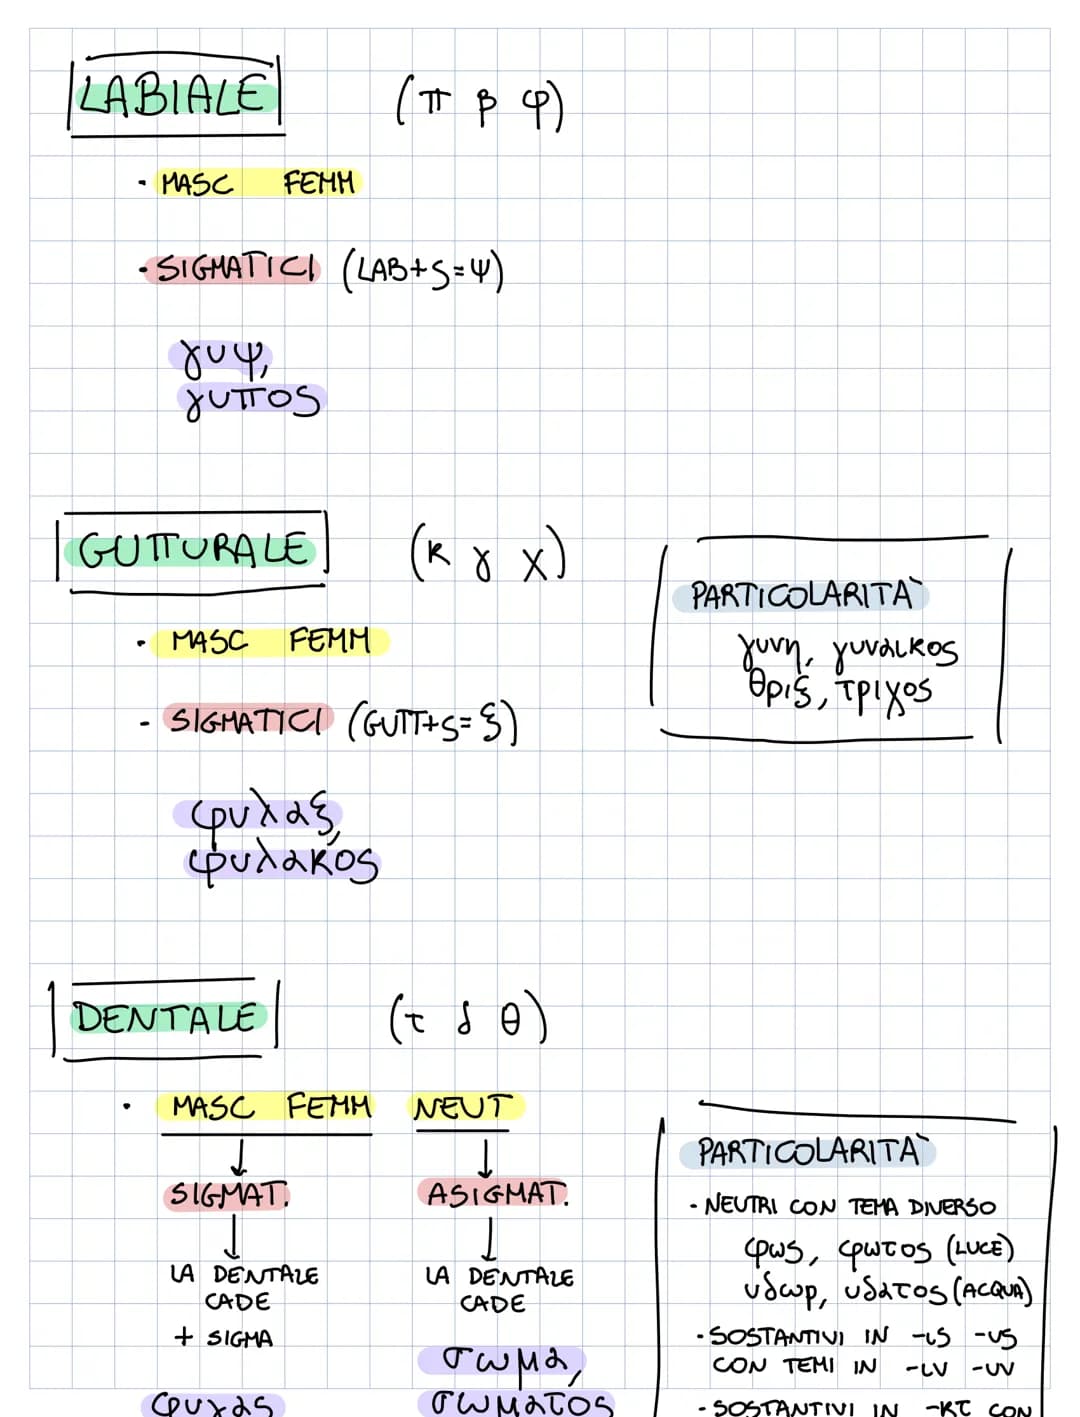 LABIALE (π β φ)
· MASC FEMM
· SIGMATICI (LAB+S=Ψ)
γυψ,
γυπος
GUTTURALE (κ γ χ)
· MASC FEMM
- SIGMATICI (GUTT+S=ξ)
φυλαξ,
φυλακος
PARTICOLARITÀ
γυνη, γυναικος
θριξ, τριχος
DENTALE (τ δ θ)
· MASC FEMM NEUT
SIGMAT. ASIGMAT.
LA DENTALE
CADE
+ SIGMA
LA DENTALE
CADE
σωμα,
σωματος
PARTICOLARITÀ
· NEUTRI CON TEMA DIVERSO
φως, φωτος (LUCE)
υδωρ, υδατος (ACQUA)
· SOSTANTIVI IN -ις -υς
CON TEMI IN -ιν -υν
- SOSTANTIVI IN -κτ CON